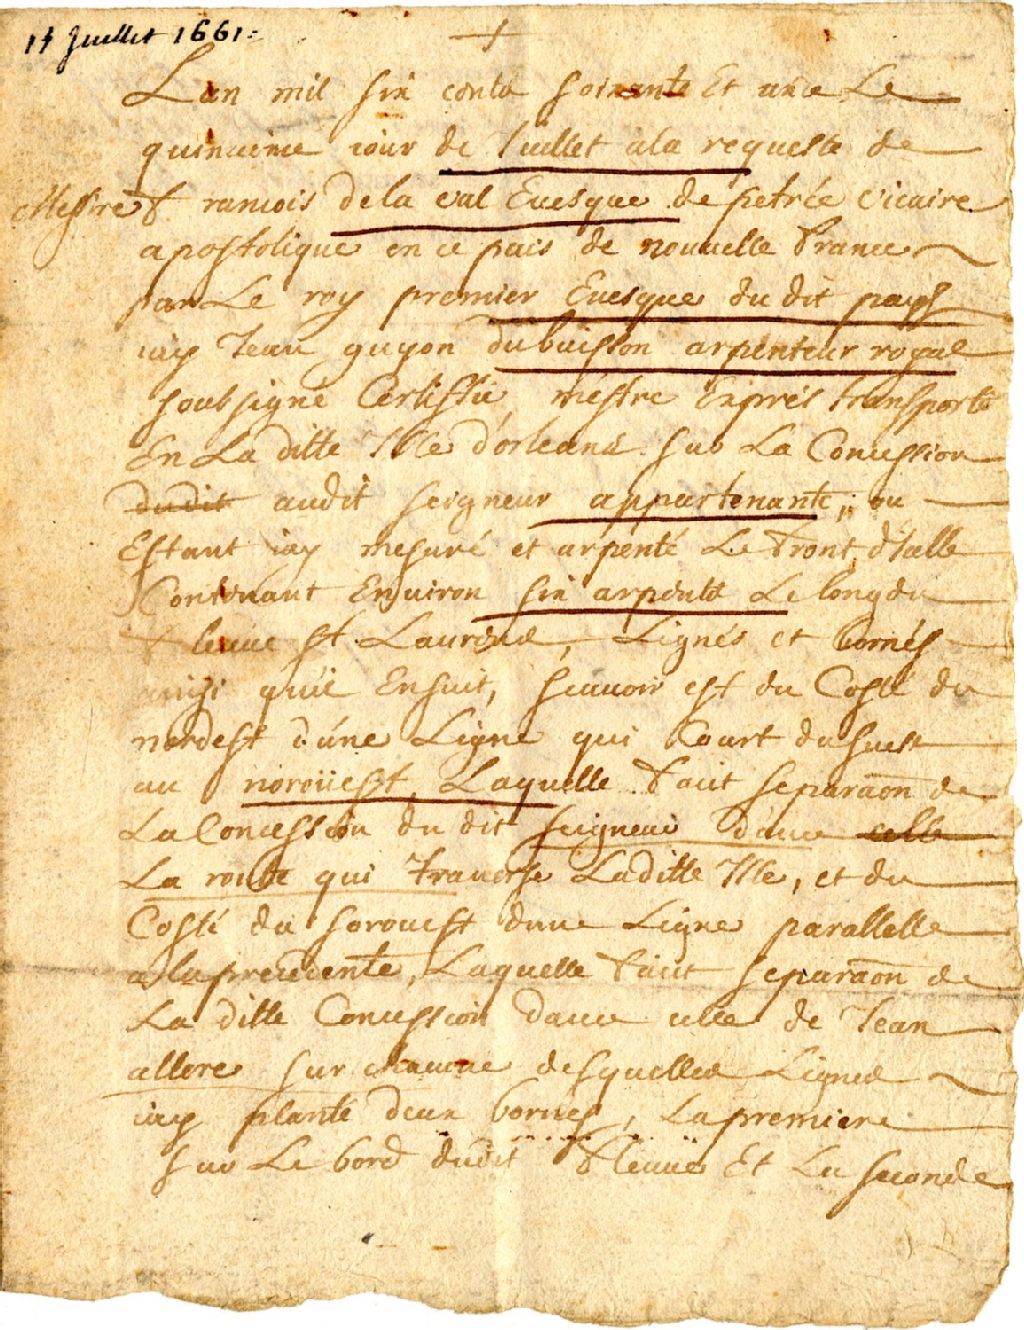 15 Juillet 1661:
Lan mil six cents soixante Et une Le
quinzieme iour de Iuillet ala requeste de
Messire francois de la val Euesque de petrée Vicaire
apostolique en ce pais de nouuelle france
par Le roy premier Euesque du dit pays
iay Iean guyon dubuisson arpenteur royal
soubsigné Certiffie, mestre Exprés transporté
En La ditte Isle d'orleans sur La Concession
dudit audit seigneur appartenante, ou
Estant iay mesuré et arpenté Le front d'icelle
Contenant Enuiron six arpents Le long du
fleuue st. Laurens, Lignés et bornés
ainsi quil Ensuit, scauoir est du Costé du
nordest d'úne Ligne qui Court du suest
au noroüest, Laquelle fait separaon de
La Concession du dit seigneur dauec celle
La route qui Trauerse Laditte Isle, et du
Costé du sorouest dune Ligne parallelle
a la precedente, Laquelle fait separaon de
La ditte Concession dauec celle de Iean
allere sur chacune desquelles Lignes
iay planté deux bornes, La premiere
sur Le bord dudit fleuue Et La seconde